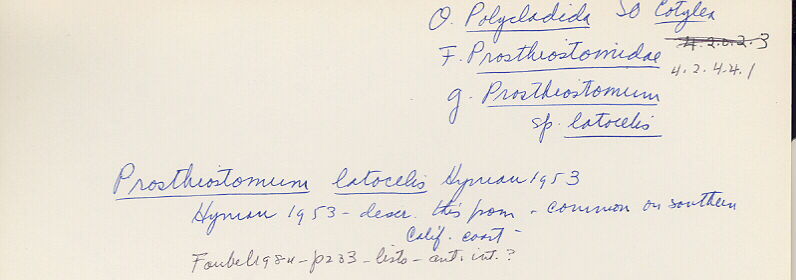 O. Polycladida SO Cotylea
F. Prostheostomidae 4.2.0.2.3
4.2.4.4.1
g. Prostheostomum
sp. latocelis
Prostheostomum latocelis Hyman 1953
Hyman 1953 - descr. this from - common on southern
Calif. coast -
Faubel 1984 - p233 - lists - ant. int. ?